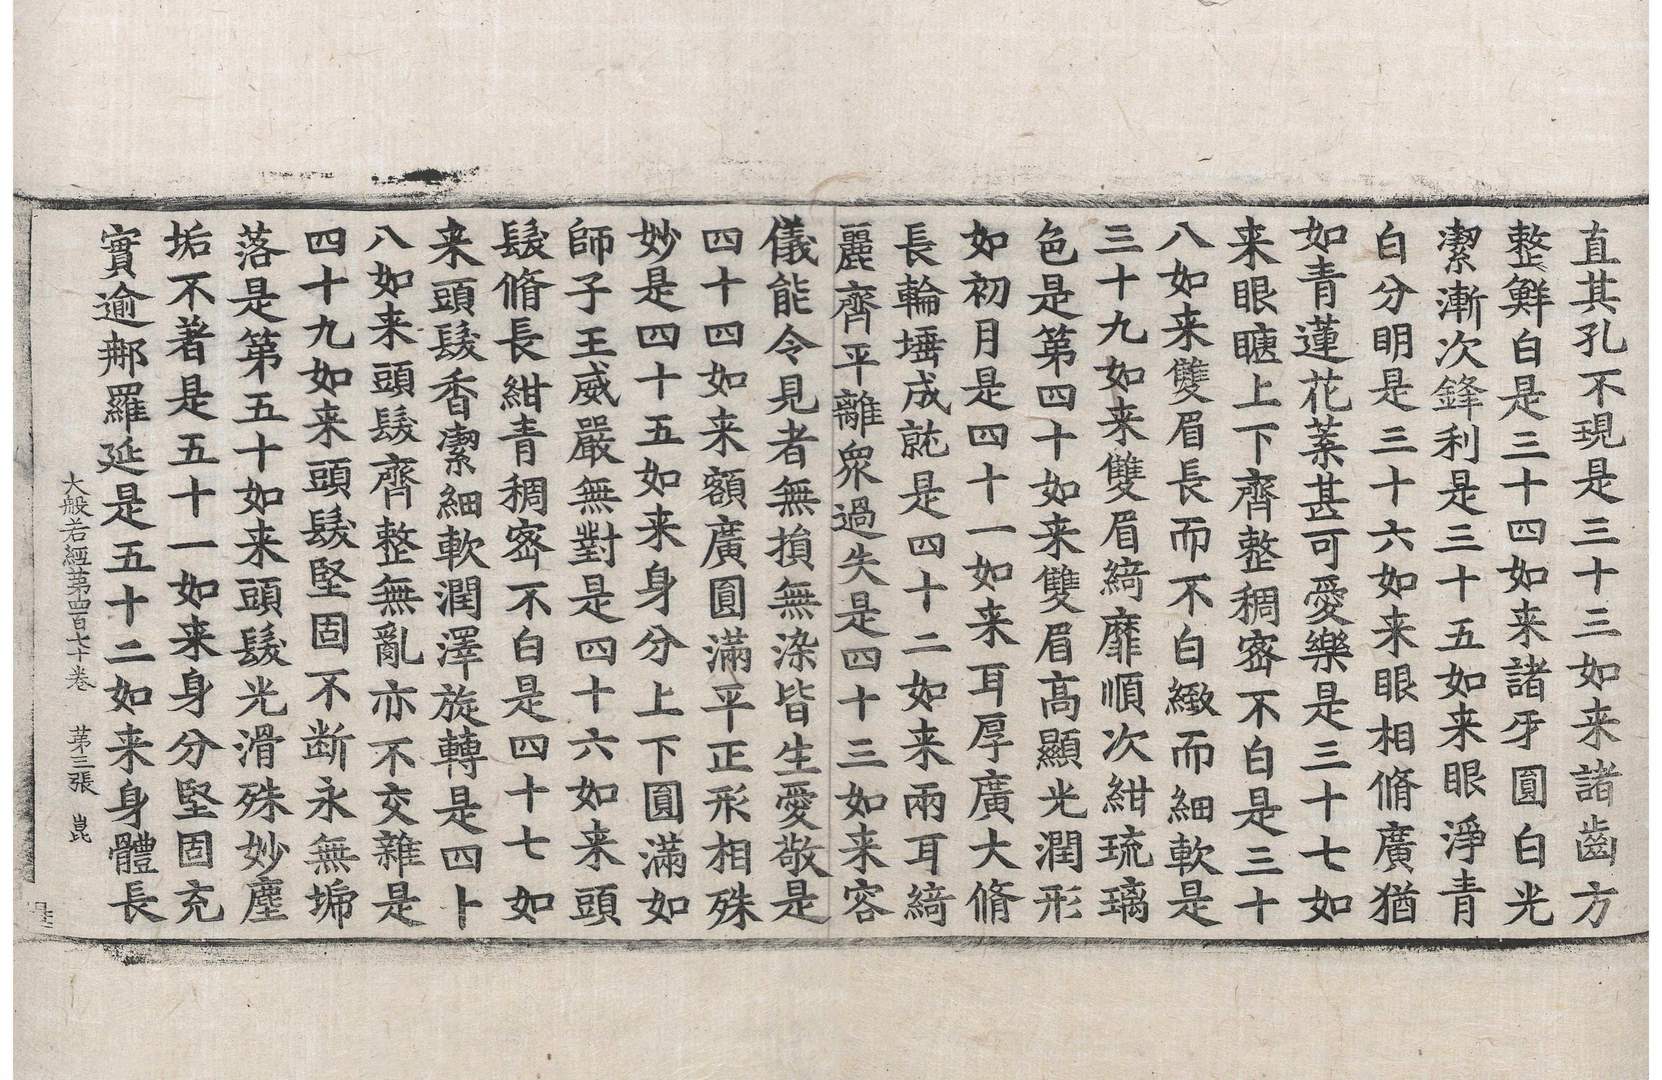 直其孔不現是三十三如来諸齒方
整鮮白是三十四如来諸牙圓白光
潔漸次鋒利是三十五如来眼淨青
白分明是三十六如来眼相脩廣猶
如青蓮花葉甚可愛樂是三十七如
来眼睫上下齊整稠密不白是三十
八如来雙眉長而不白緻而細軟是
三十九如来雙眉綺靡順次紺琉璃
色是第四十如来雙眉高顯光潤形
如初月是四十一如来耳厚廣大脩
長輪埵成就是四十二如来兩耳綺
麗齊平離衆過失是四十三如来容
儀能令見者無損無染皆生愛敬是
四十四如来額廣圓滿平正形相殊
妙是四十五如来身分上下圓滿如
師子王威嚴無對是四十六如来頭
髮脩長紺青稠密不白是四十七如
来頭髮香潔細軟潤澤旋轉是四十
八如来頭髮齊整無亂亦不交雜是
四十九如来頭髮堅固不断永無堋
落是第五十如来頭髮光滑殊妙塵
垢不著是五十一如来身分堅固充
實逾那羅延是五十二如来身體長
大般若經第四百七十卷 第三張 崑